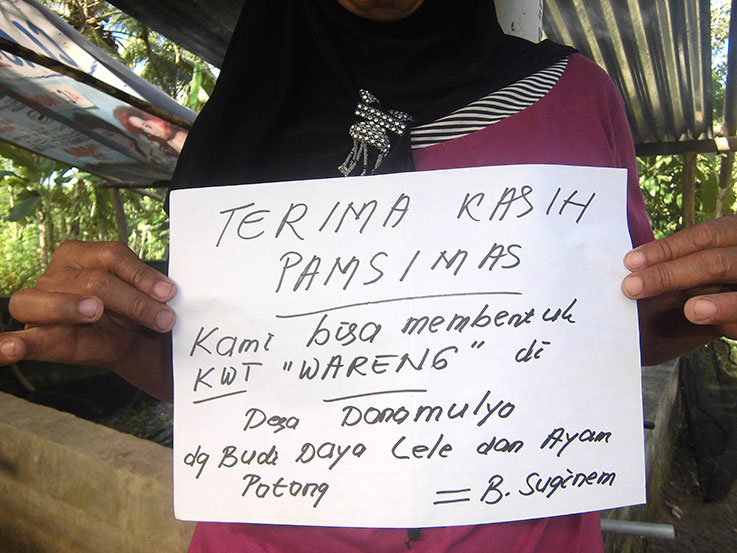 TERIMA KASIH
PAMSIMAS
Kami bisa membentuk
KWT "WARENG" di
Desa Donomulyo
dg Budi Daya Lele dan Ayam
Potong = B. Suginem